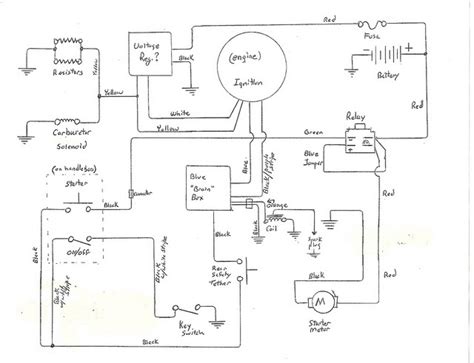 Red
Fuse
Battery
Red
Voltage
Reg.?
Black
(engine)
Ignition
Resistors
Yellow
Yellow
White
Yellow
Carburetor
Solenoid
Green
Relay
Blue
Jumper
Red
(on handlebar)
Starter
Black
Blue
"Brain"
Box
Black
Black/purple stripe
Orange
Coil
Spark
plug
Black
On/Off
Black
Black
Rear
Safety
Tether
Black
Key
Switch
Black
Black
Red
M
Starter
Motor